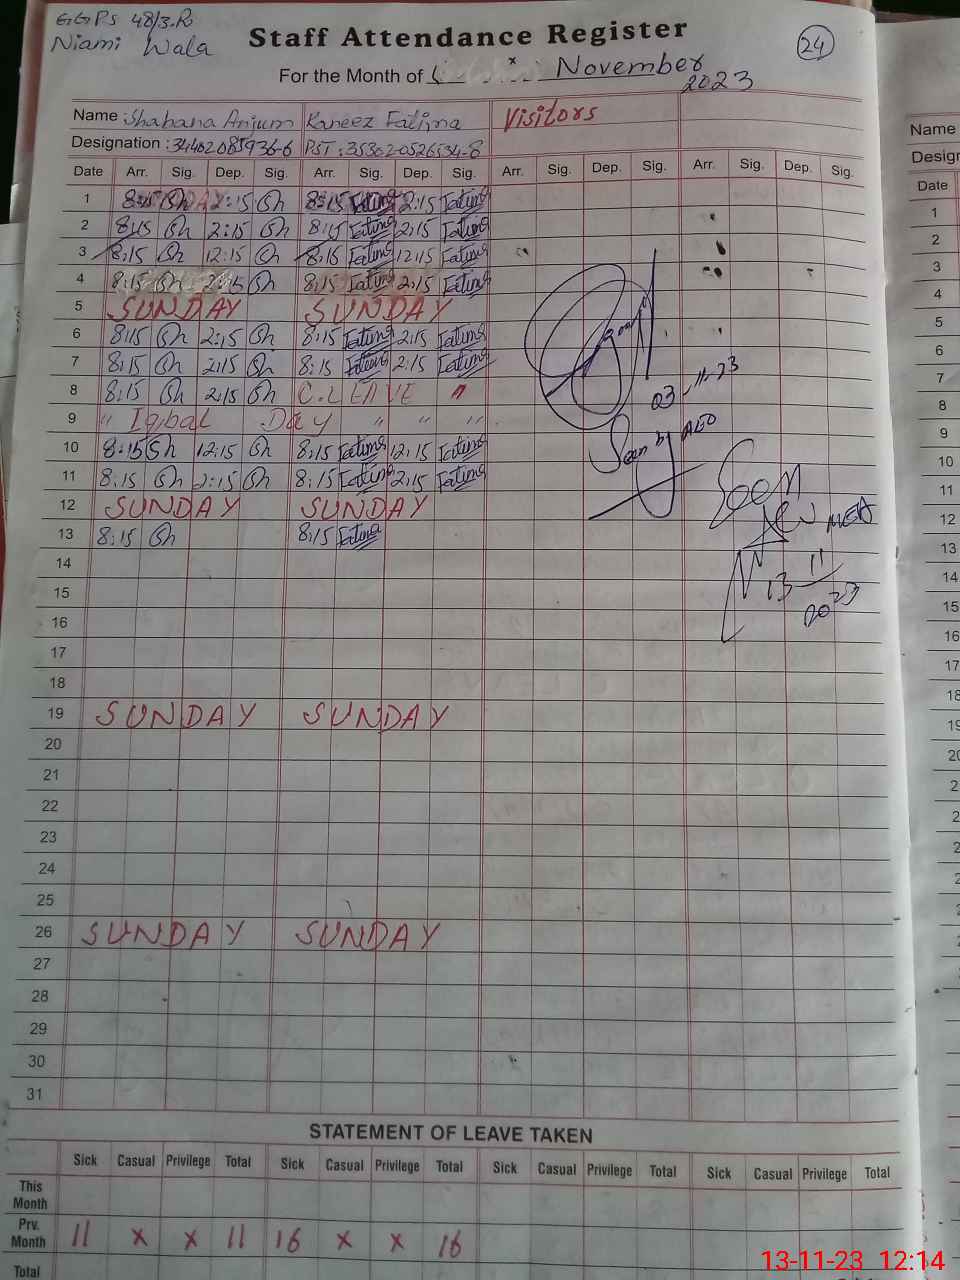 GGPS 48/3.R
Niami Wala
Staff Attendance Register
24
For the Month of November
2023
Name Shabana Anjum Kaneez Fatima Visitors
Designation : 34402085936-6 PST : 35302-0526534-8
Date Arr. Sig. Dep. Sig. Arr. Sig. Dep. Sig. Arr. Sig. Dep. Sig. Arr. Sig. Dep. Sig.
1 8:15 Sh 2:15 Sh 8:15 Fatima 2:15 Fatima
2 8:15 Sh 2:15 Sh 8:15 Fatima 2:15 Fatima
3 8:15 Sh 12:15 Sh 8:15 Fatima 12:15 Fatima
4 8:15 Sh 2:15 Sh 8:15 Fatima 2:15 Fatima
5 SUNDAY SUNDAY
6 8:15 Sh 2:15 Sh 8:15 Fatima 2:15 Fatima
7 8:15 Sh 2:15 Sh 8:15 Fatima 2:15 Fatima
8 8:15 Sh 2:15 Sh C.LEAVE "
03-11-23
9 " Iqbal Day " " "
Seen by AEO
10 8:15 Sh 12:15 Sh 8:15 Fatima 12:15 Fatima
11 8:15 Sh 2:15 Sh 8:15 Fatima 2:15 Fatima
Seen
12 SUNDAY SUNDAY
MEA
13 8:15 Sh 8:15 Fatima
14
13 11
2023
15
16
17
18
19 SUNDAY SUNDAY
20
21
22
23
24
25
26 SUNDAY SUNDAY
27
28
29
30
31
STATEMENT OF LEAVE TAKEN
Sick Casual Privilege Total Sick Casual Privilege Total Sick Casual Privilege Total Sick Casual Privilege Total
This Month
Prv. Month 11 x x 11 16 x x 16
Total
13-11-23 12:14
Name
Date
1
2
3
4
5
6
7
8
9
10
11
12
13
14
15
16
17
18